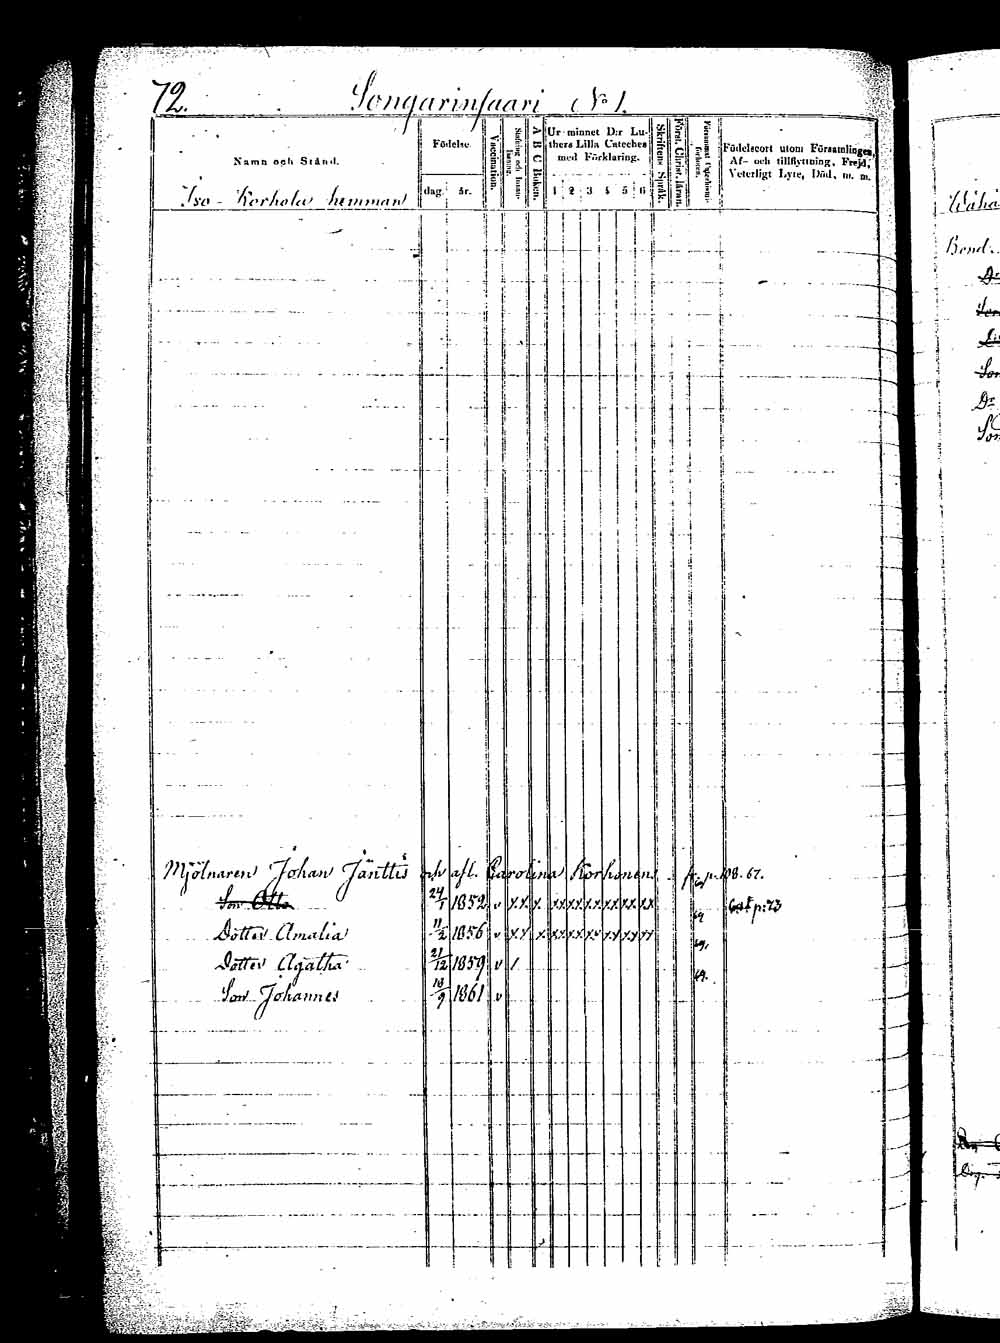 72. Songarinsaari No 1.
Namn och Stånd.
Födelse
dag. år.
Vaccination.
A B C Boken.
Ur minnet D:r Lu-
thers Lilla Cateches
med Förklaring.
1 2 3 4 5 6
Skriftens Språk.
Först. Christ. läran.
Födelseort utom Församlingen,
Af- och tillflyttning, Frejd,
Veterligt Lyte, Död, m. m.
Iso-Korhola hemman
Mjölnaren Johan Jänttis och afl. Carolina Korhonen fr. p. 108. 67.
Son Otto 24/1 1852 v x x x xx xx xx xx xx xx p: 73
Dotter Amalia 11/2 1856 v x x x xx xx xx xx xx xx 69
Dotter Agatha 21/12 1859 v / 69.
Son Johannes 18/9 1861 v 69.
Bond.
Dr
Son
Dr
Son